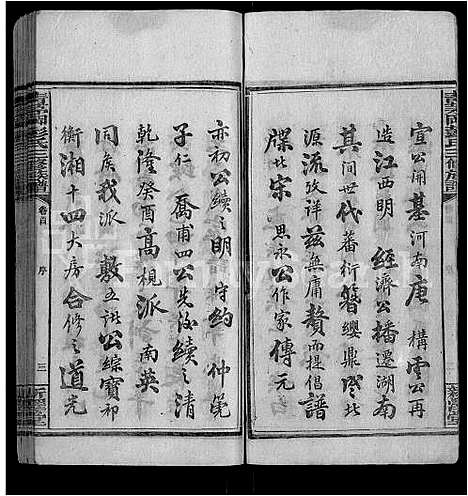 宣公開基河南唐 構雲公再
造江西明 經濟公播遷湖南
其間世代蕃衍簪纓鼎盛此
源流攷詳茲無庸贅而提倡譜
牒此宋 思永公作家傳元
亦初公續之明 守約 仲箎
子仁 喬甫四公先後續之清
乾隆癸酉高梘派 南英
同房我派 敷五諸公綜寶祁
衡湘十四大房合修之道光
氏三修族譜
卷首
序
三